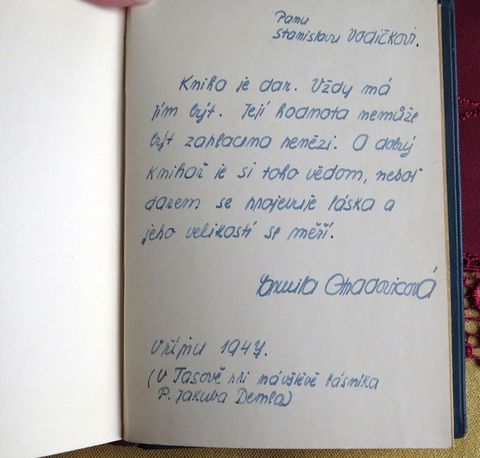 Panu
Stanislavu Vodičkovi.
Kniha je dar. Vždy má
jím být. Její hodnota nemůže
být zaplacena penězi. A dobrý
knihař je si toho vědom, neboť
darem se projevuje láska a
jeho velikostí se měří.
V říjnu 1947.
(V Tasově při návštěvě básníka
P. Jakuba Demla)